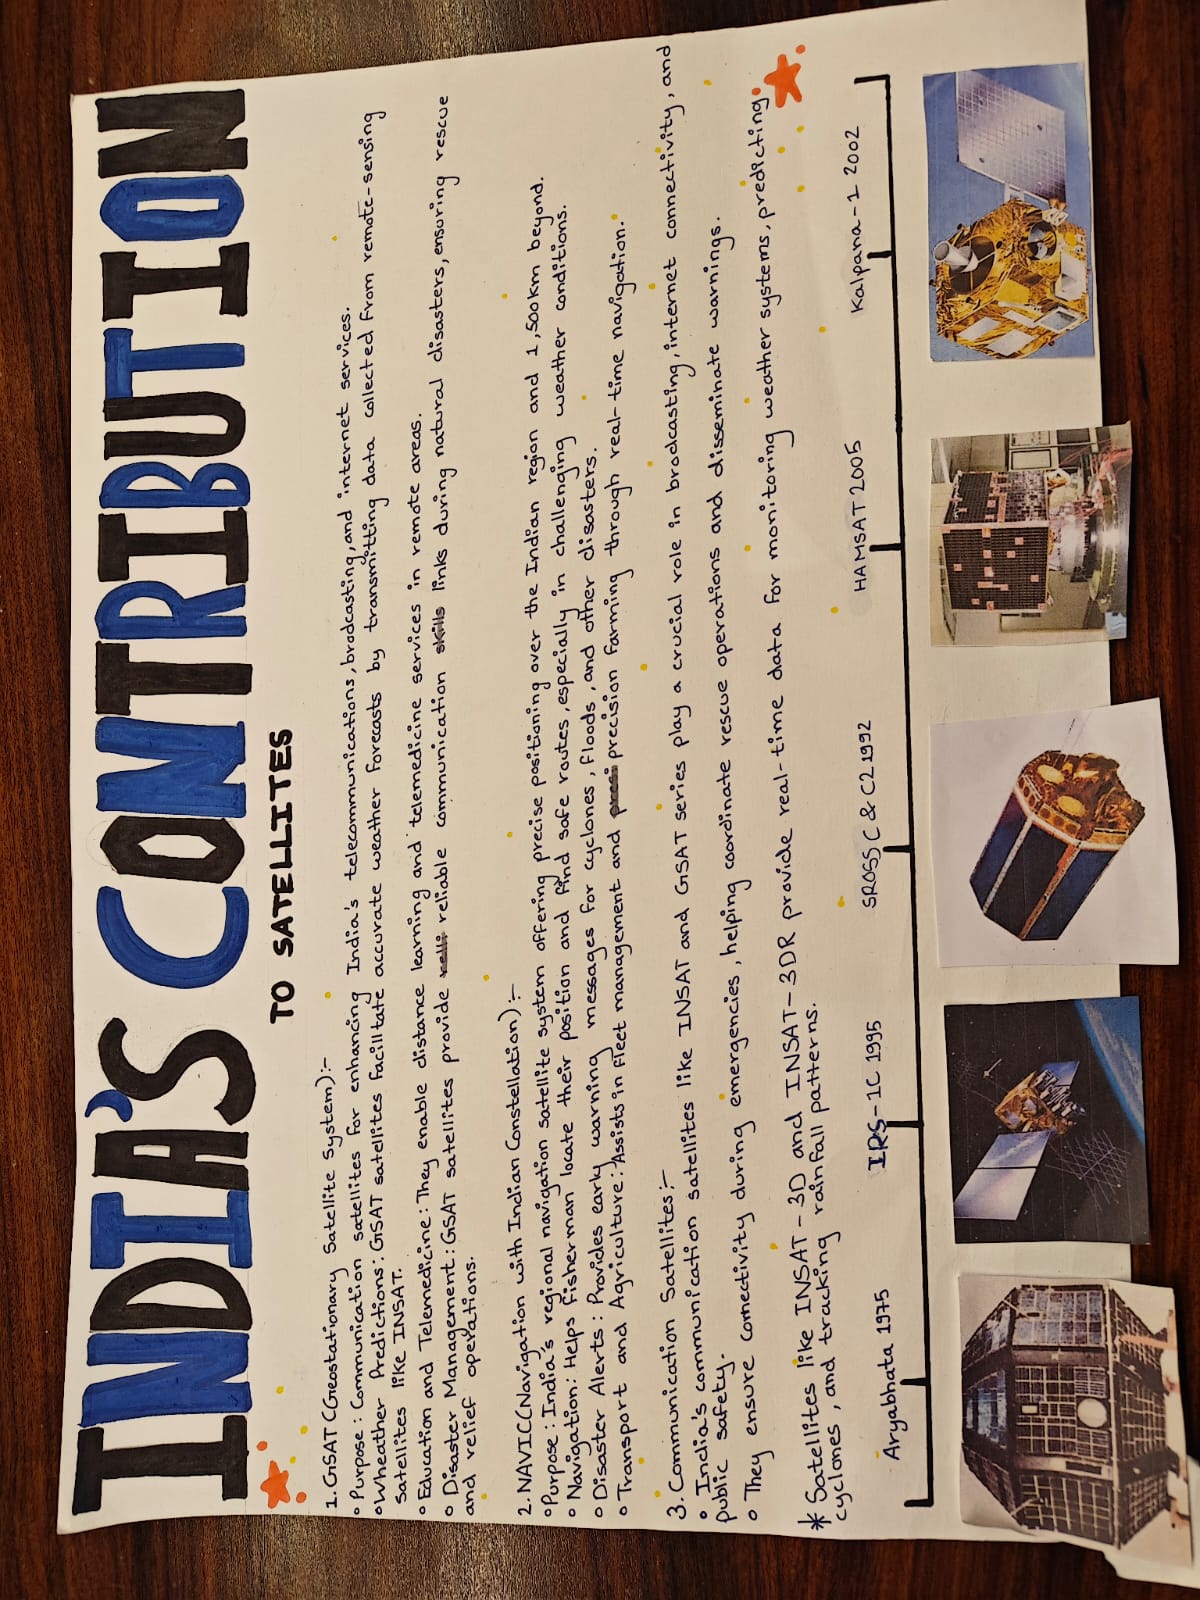 INDIA'S CONTRIBUTION
TO SATELLITES
1. GSAT (Geostationary Satellite System):-
• Purpose: Communication satellites for enhancing India's telecommunications, brodcasting, and internet services.
• Wheather Predictions: GSAT satellites facilitate accurate weather forecasts by transmitting data collected from remote-sensing
satellites like INSAT.
• Education and Telemedicine: They enable distance learning and telemedicine services in remote areas.
• Disaster Management: GSAT satellites provide relli reliable communication skills links during natural disasters, ensuring rescue
and relief operations.
2. NAVIC (Navigation with Indian Constellation):-
• Purpose: India's regional navigation satellite system offering precise positioning over the Indian region and 1,500km beyond.
• Navigation: Helps fisherman locate their position and find safe routes, especially in challenging weather conditions.
• Disaster Alerts: Provides early warning messages for cyclones, floods, and other disasters.
• Transport and Agriculture: Assists in fleet management and presi precision farming through real-time navigation.
3. Communication Satellites:-
• India's communication satellites like INSAT and GSAT series play a crucial role in brodcasting, internet connectivity, and
public safety.
• They ensure connectivity during emergencies, helping coordinate rescue operations and disseminate warnings.
* Satellites like INSAT-3D and INSAT-3DR provide real-time data for monitoring weather systems, predicting
cyclones, and tracking rainfall patterns.
Aryabhata 1975 IRS-1C 1995 SROSS C & C2 1992 HAMSAT 2005 Kalpana-1 2002